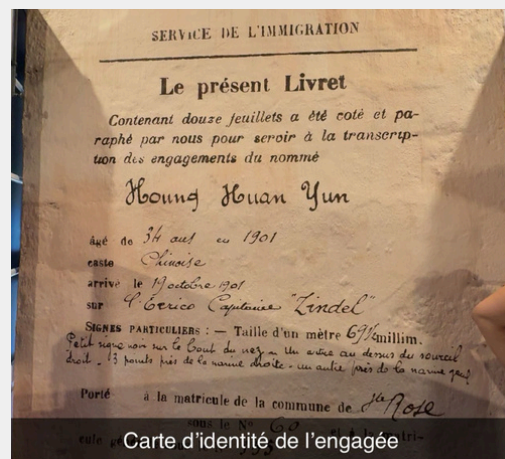 SERVICE DE L'IMMIGRATION
Le présent Livret
Contenant douze feuillets a été coté et pa-
raphé par nous pour servir à la transcrip-
tion des engagements du nommé
Houng Huan Yun
âgé de 34 ans en 1901
caste Chinoise
arrivé le 19 octobre 1901
sur l'Erica Capitaine "Zindel"
SIGNES PARTICULIERS : — Taille d'un mètre 691/2 millim.
Petit signe noir sur le bout du nez — Un autre au dessus du sourcil
droit - 3 points près de la narine droite - un autre près de la narine
Porté à la matricule de la commune de Ste Rose
sous le No 60
Carte d'identité de l'engagée